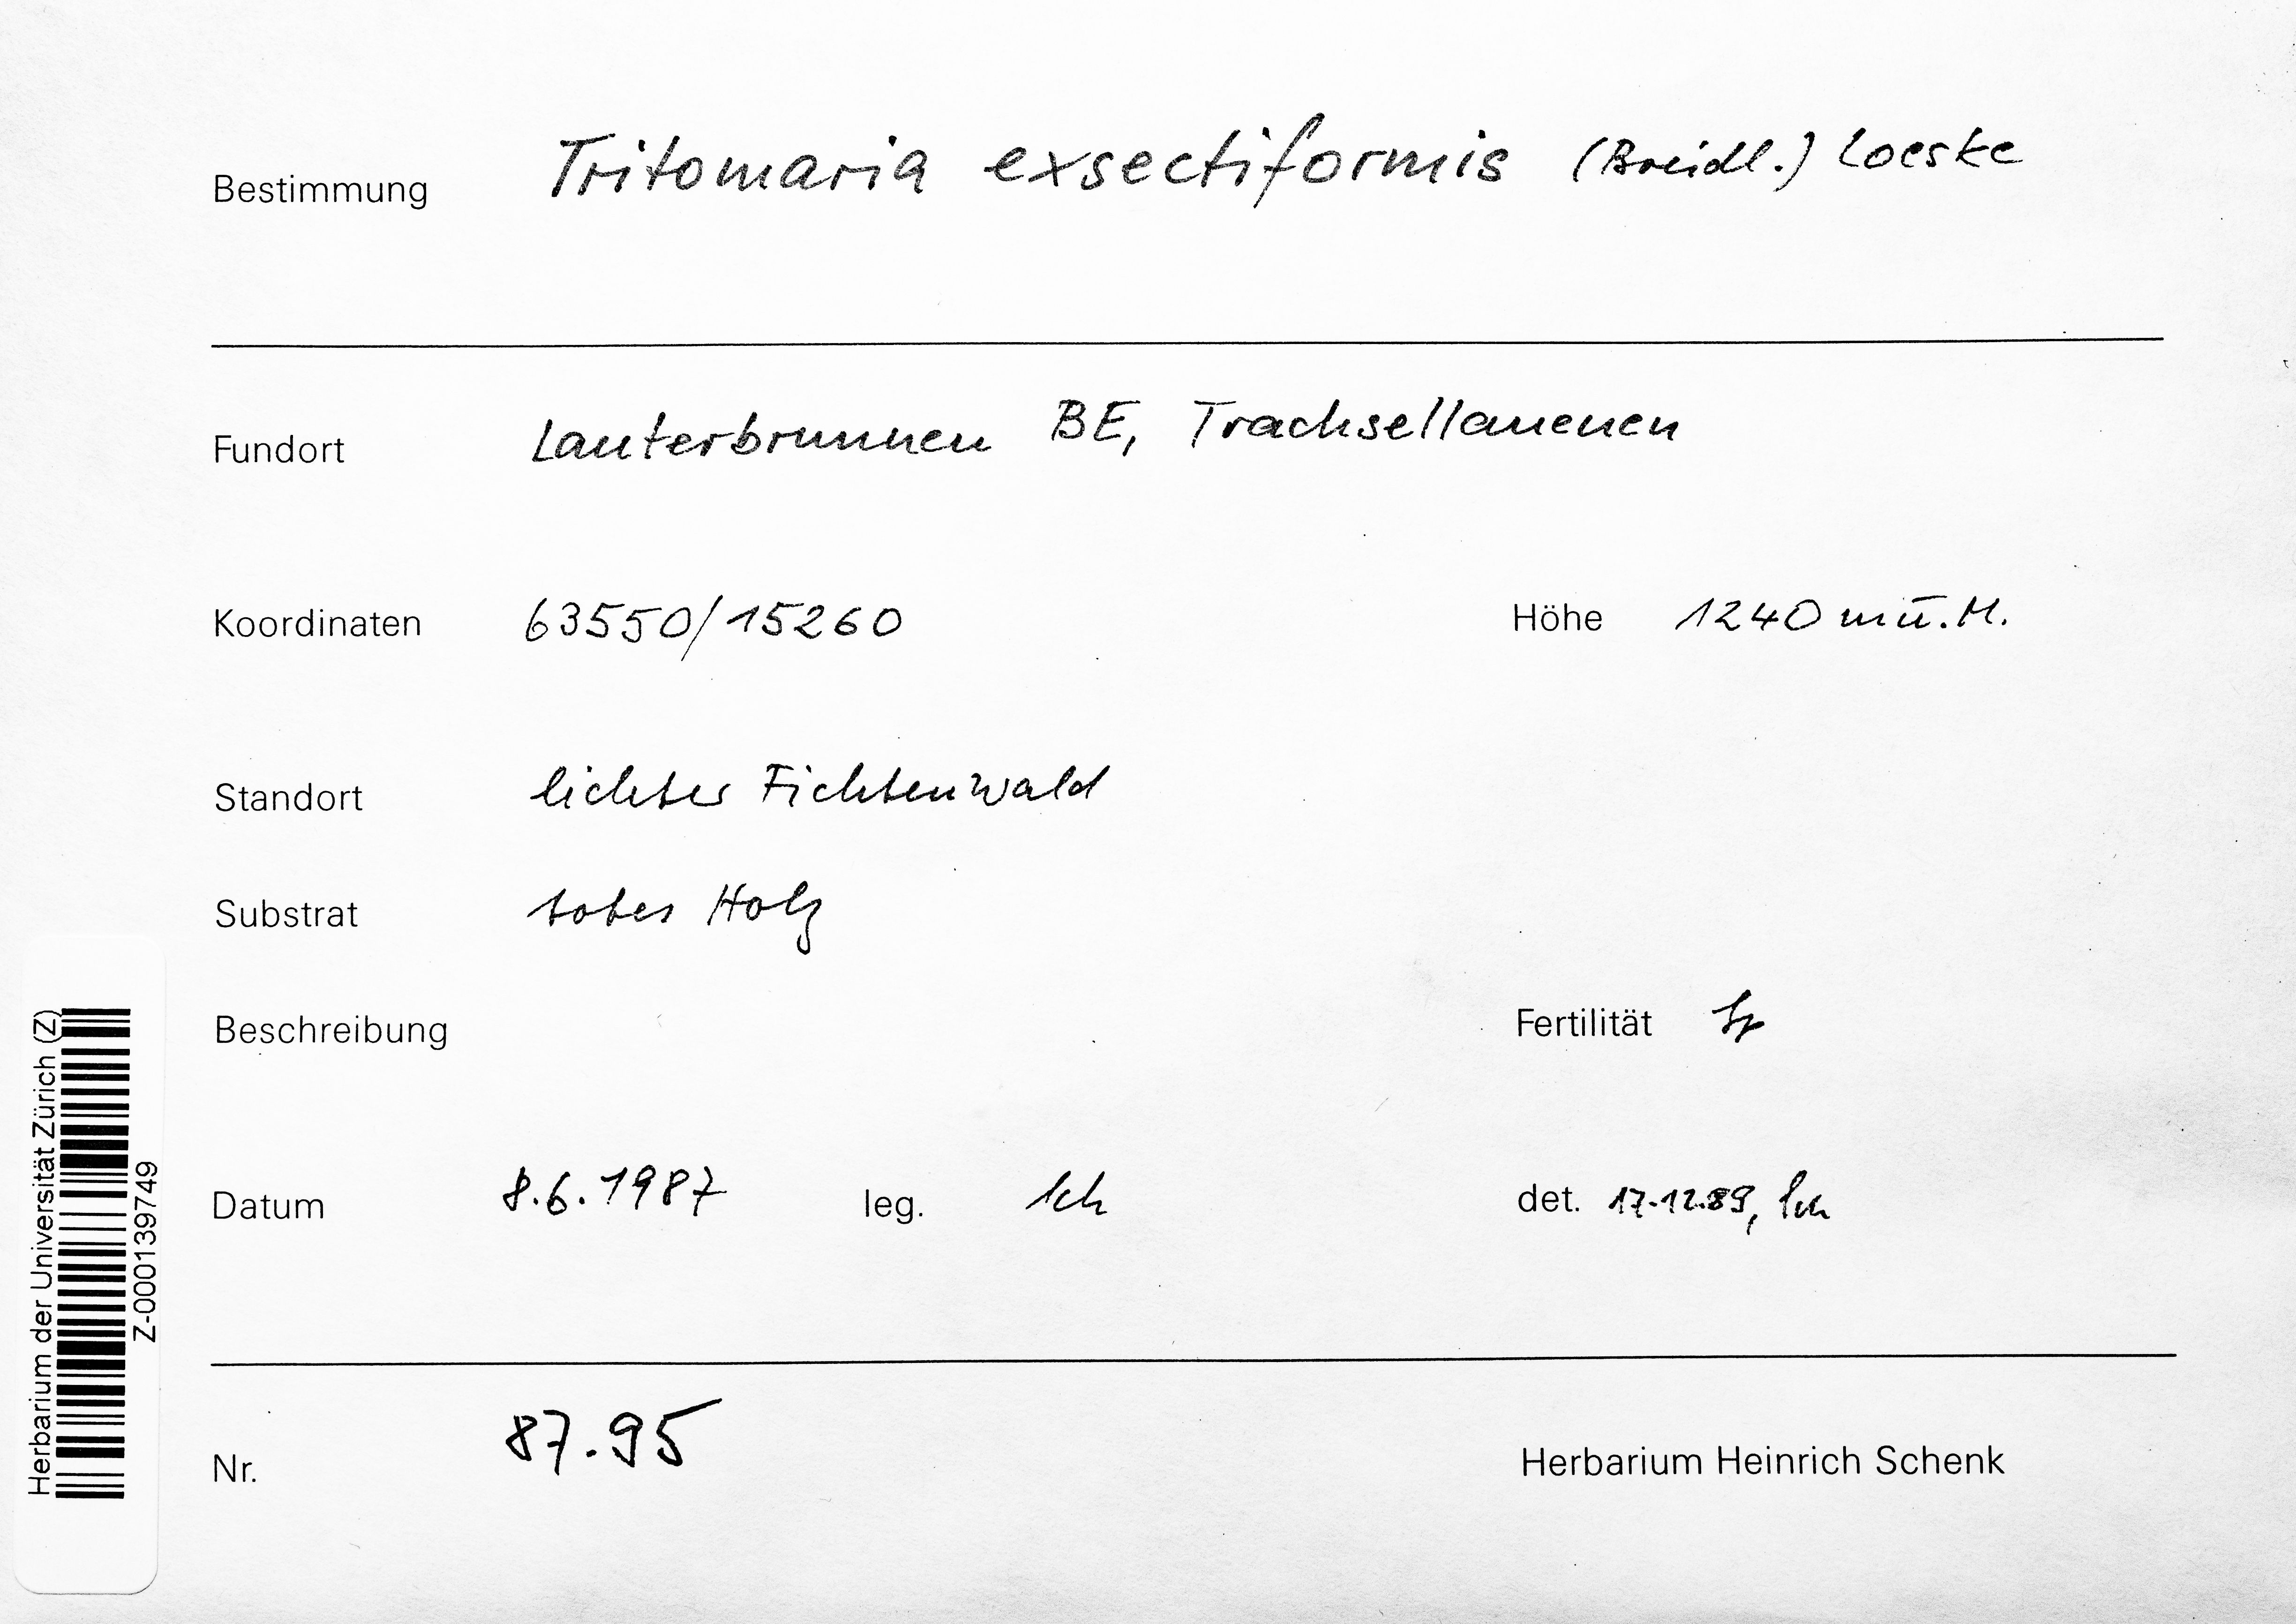 Bestimmung Tritomaria exsectiformis (Breidl.) Loeske
Fundort Lauterbrunnen BE, Trachsellauenen
Koordinaten 63550/15260 Höhe 1240 m ü. M.
Standort lichter Fichtenwald
Substrat totes Holz
Beschreibung Fertilität
Datum 8.6.1987 leg. Sch det. 17.12.89, Sch
Nr. 87.95 Herbarium Heinrich Schenk
Herbarium der Universität Zürich (Z)
Z-000139749